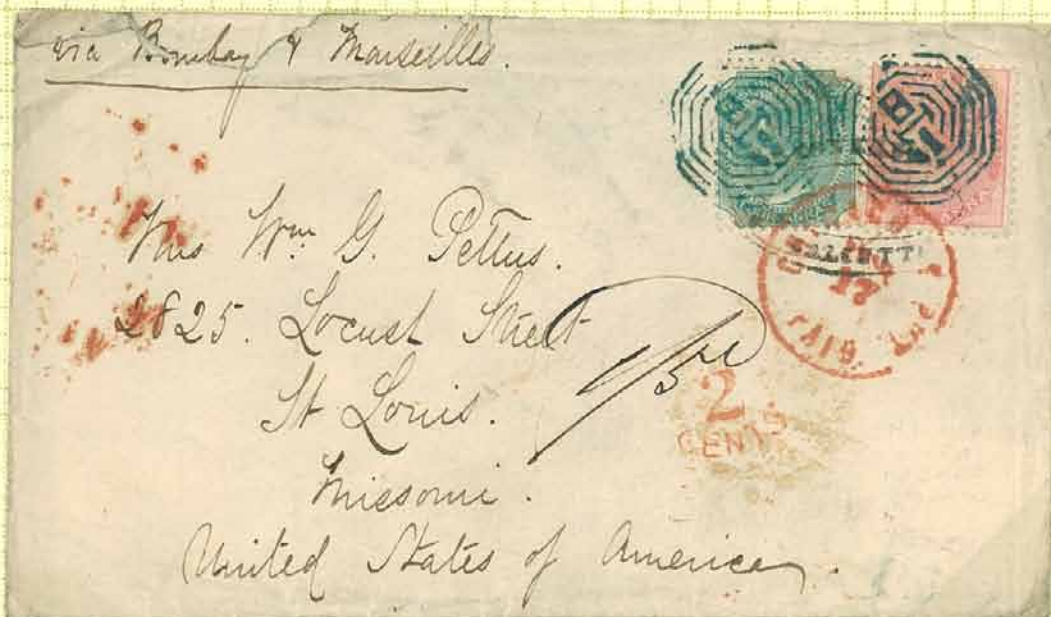 via Bombay & Marseilles.
Wm G. Pettus.
2825. Locust Street
St Louis.
Missouri.
United States of America.
B
1
CALCUTTA
17
PAID
2
CENTS